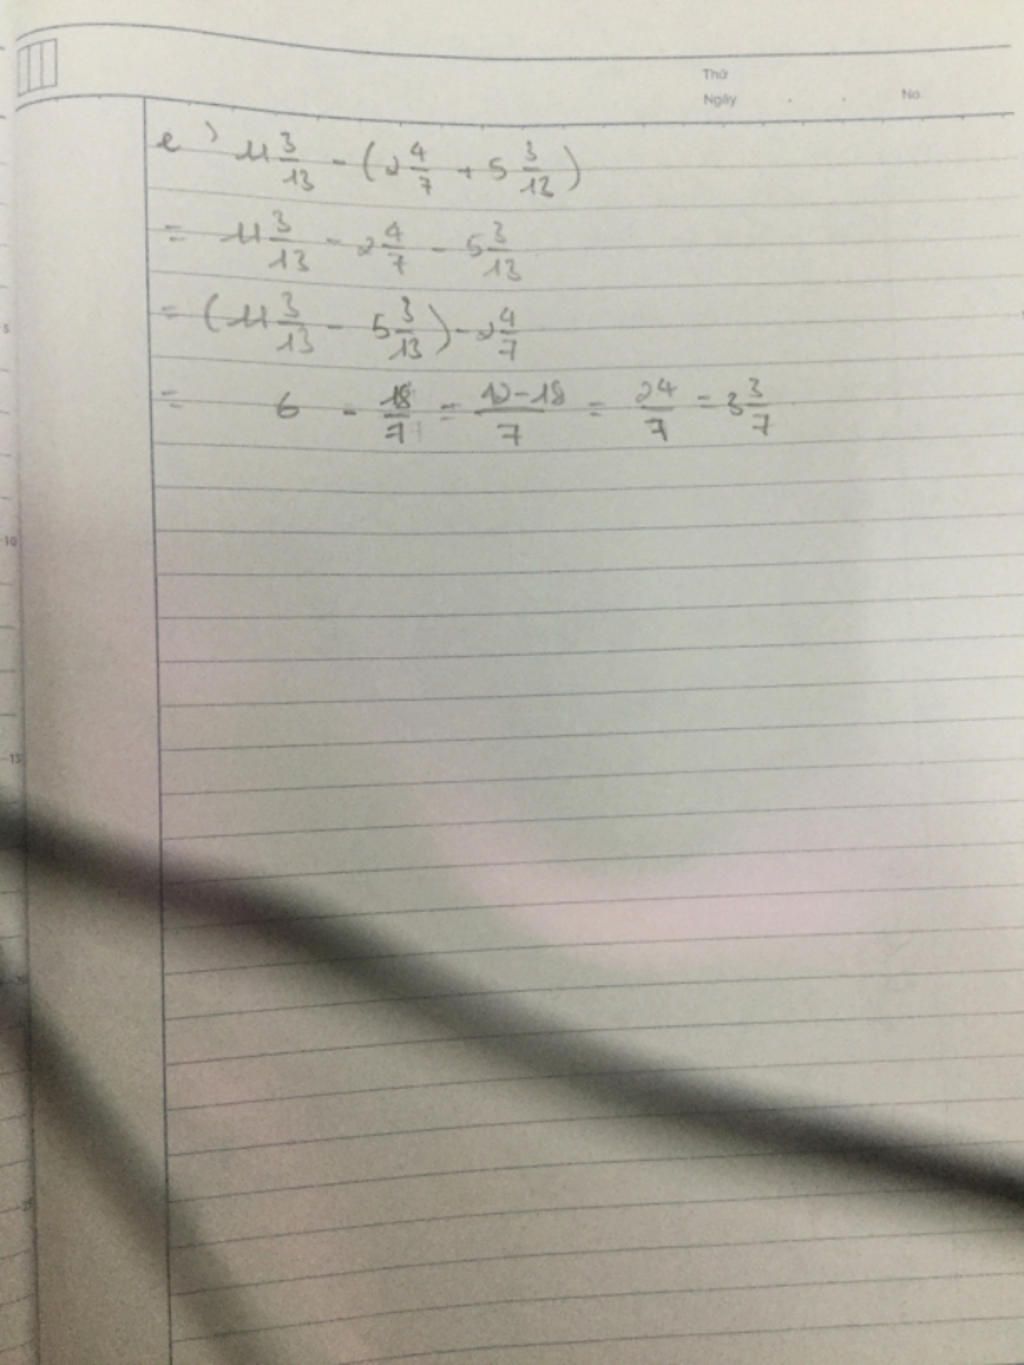 Thứ
Ngày . . No.
e) 11 3/13 - (2 4/7 + 5 3/13)
= 11 3/13 - 2 4/7 - 5 3/13
= (11 3/13 - 5 3/13) - 2 4/7
= 6 - 18/7 = 42-18/7 = 24/7 = 3 3/7
5
10
15